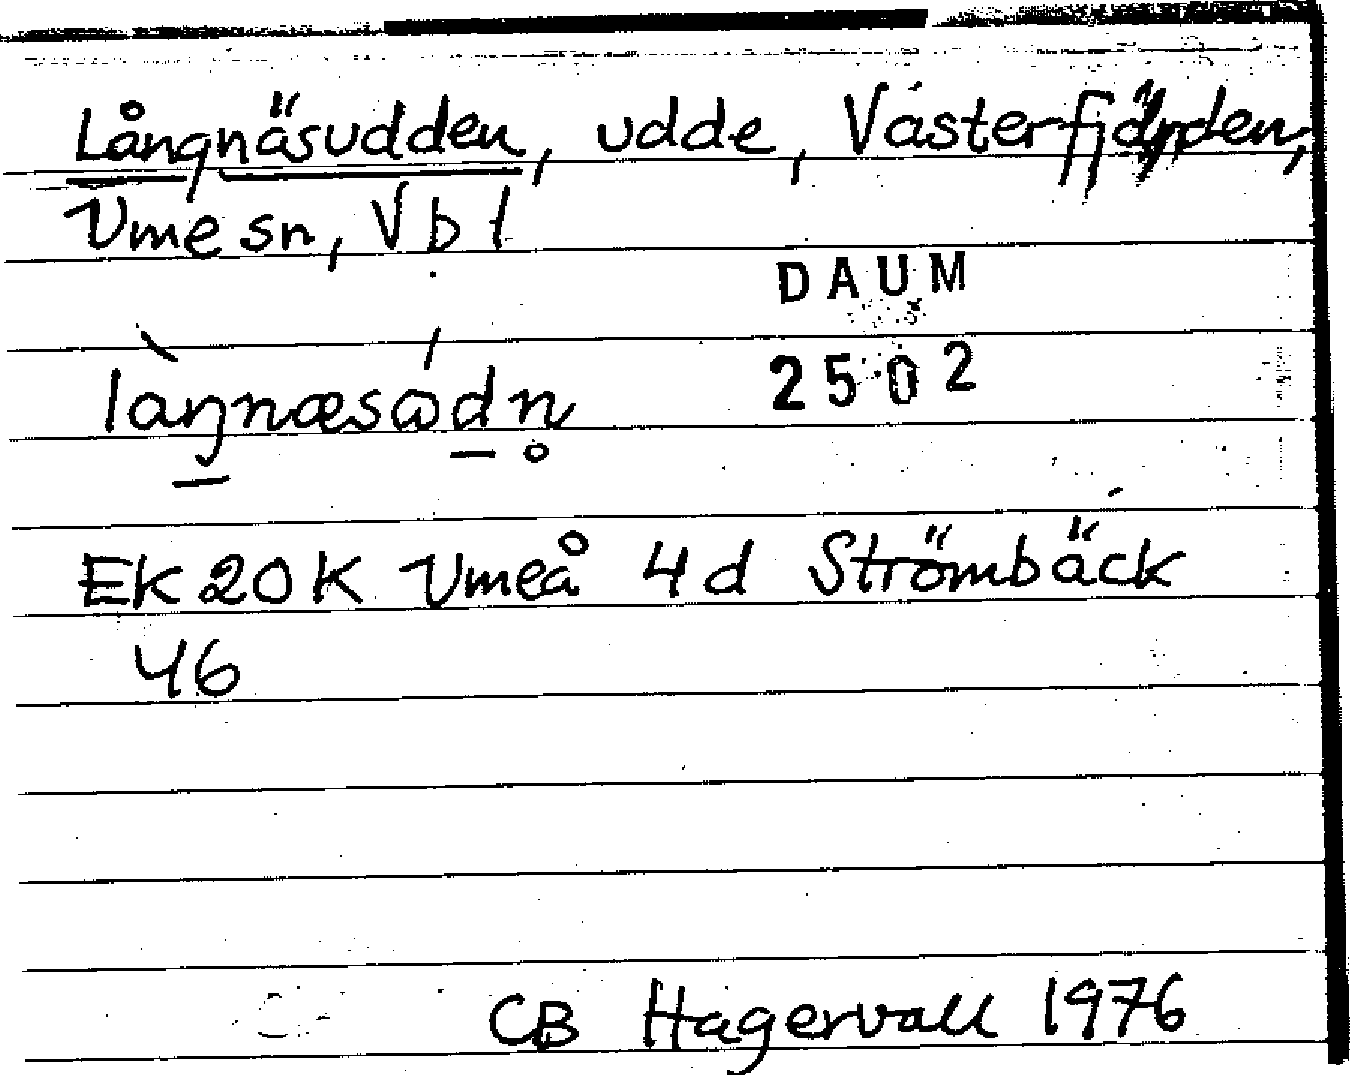 Långnäsudden, udde, Västerfjärden,
Ume sn, Vbl
DAUM
2502
EK 20K Umeå 4d Strömbäck
46
CB Hagervall 1976